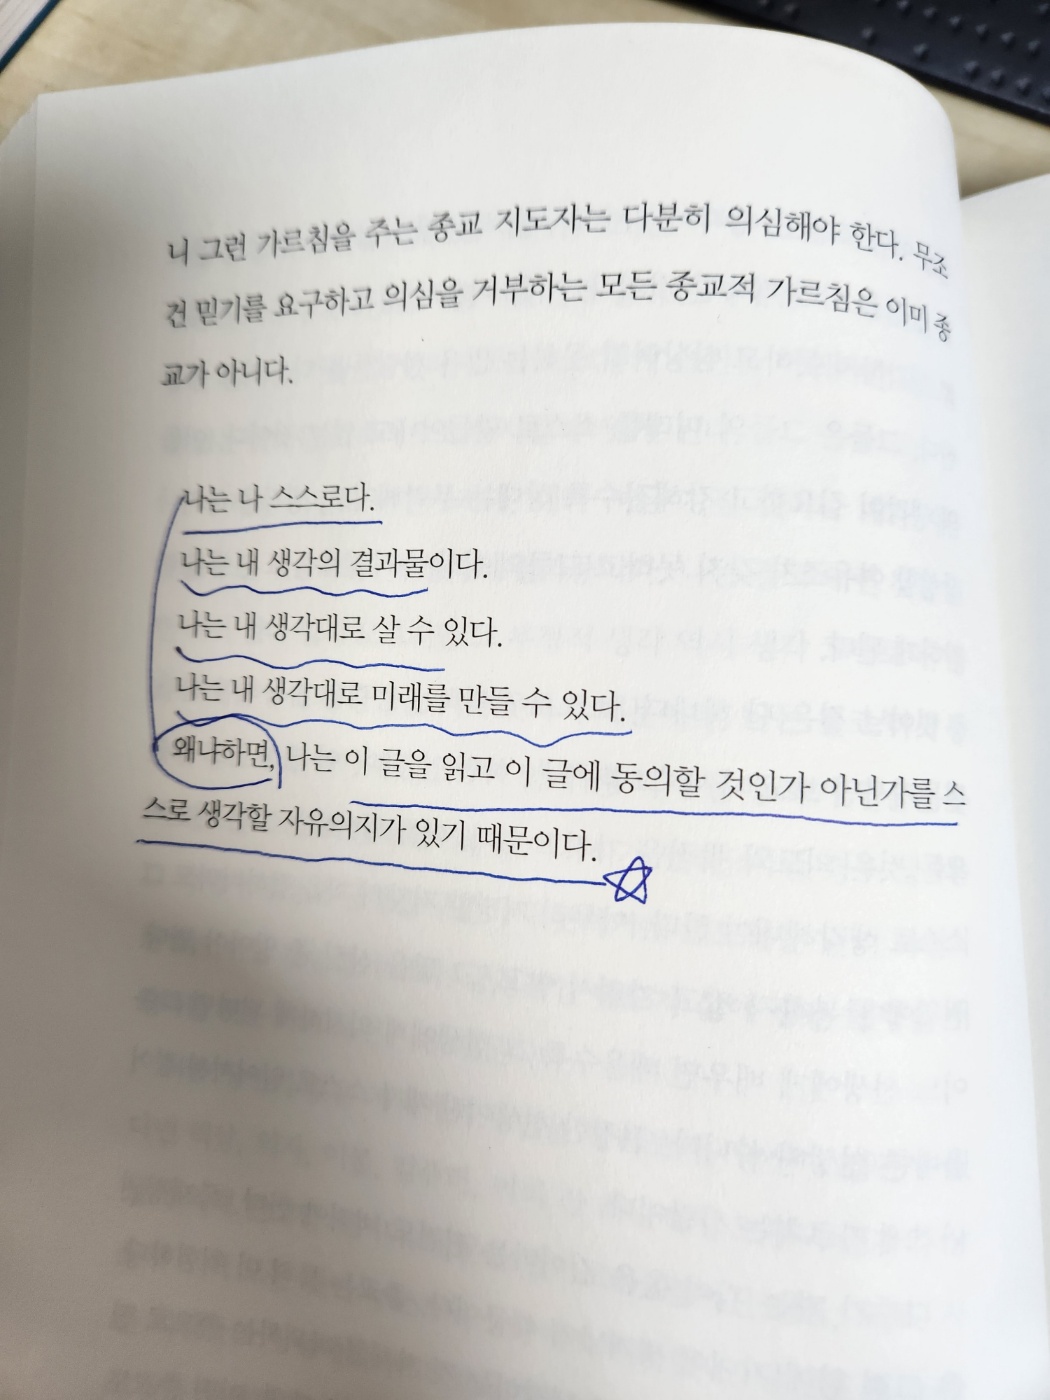 니 그런 가르침을 주는 종교 지도자는 다분히 의심해야 한다. 무조
건 믿기를 요구하고 의심을 거부하는 모든 종교적 가르침은 이미 종
교가 아니다.
나는 나 스스로다.
나는 내 생각의 결과물이다.
나는 내 생각대로 살 수 있다.
나는 내 생각대로 미래를 만들 수 있다.
왜냐하면, 나는 이 글을 읽고 이 글에 동의할 것인가 아닌가를 스
스로 생각할 자유의지가 있기 때문이다.